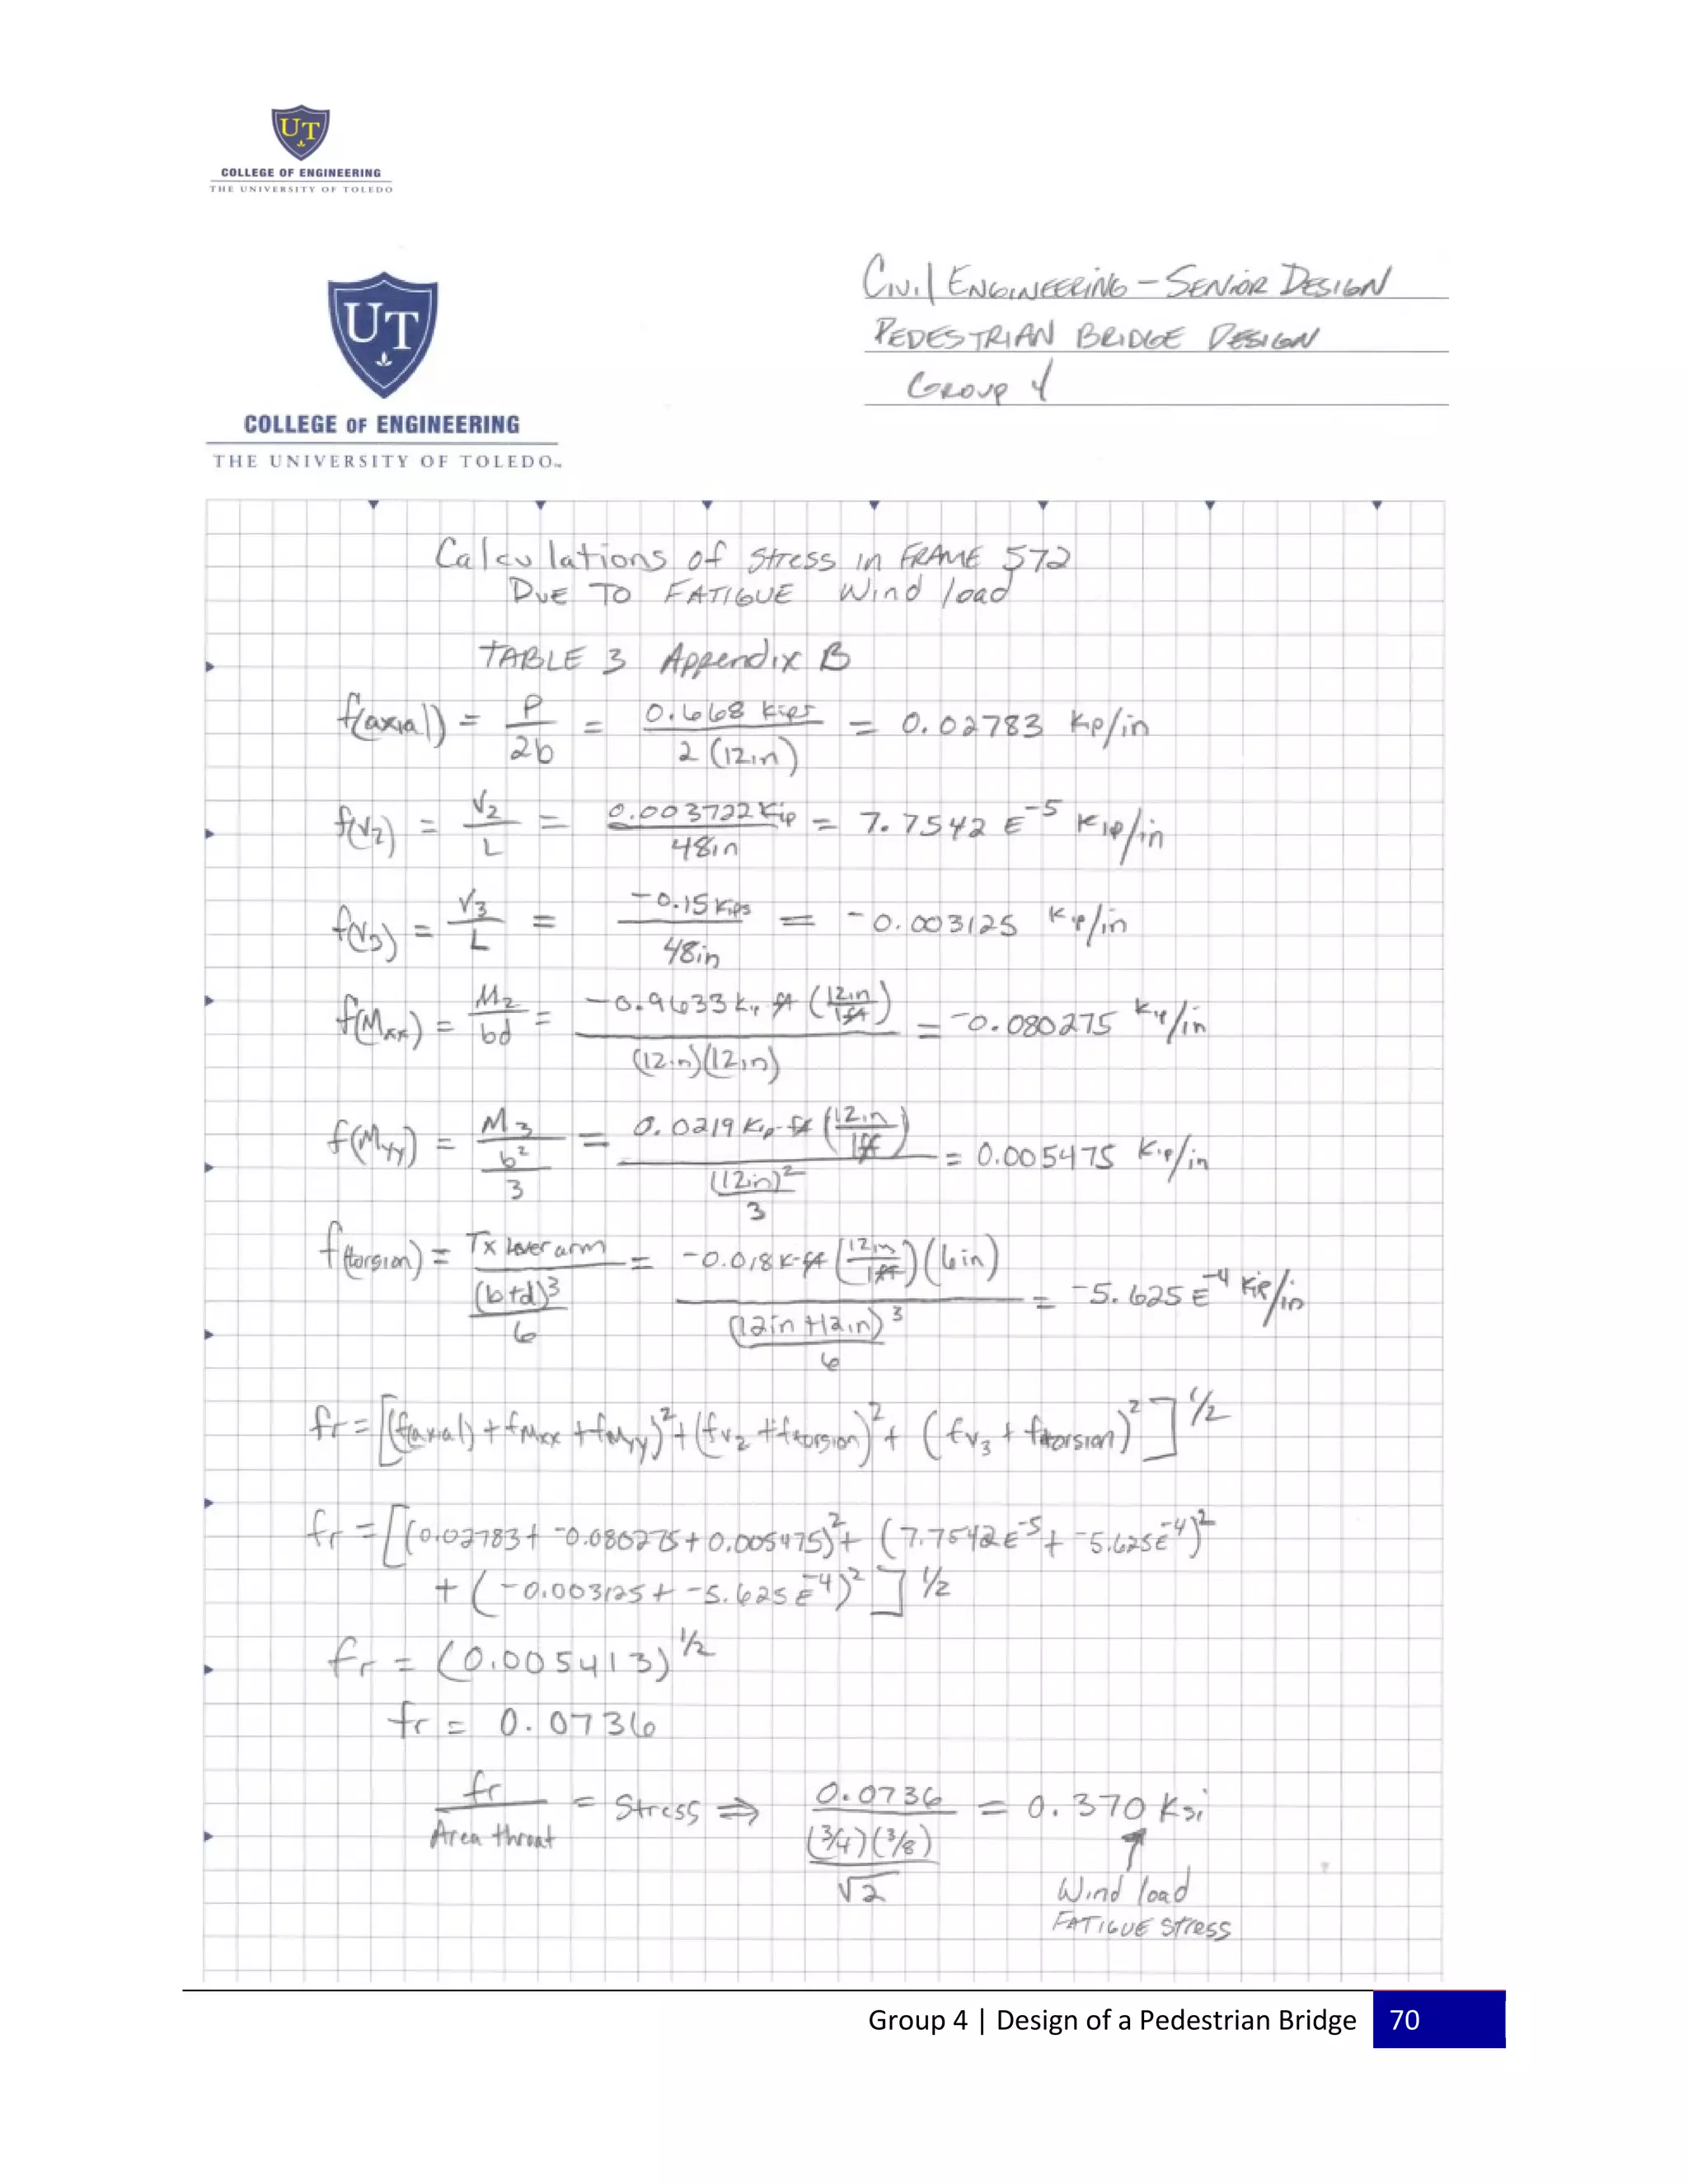 UT
COLLEGE OF ENGINEERING
THE UNIVERSITY OF TOLEDO
Civil ENGINEERING - SENIOR DESIGN
UT
PEDESTRIAN BRIDGE DESIGN
GROUP 4
COLLEGE OF ENGINEERING
THE UNIVERSITY OF TOLEDO™
Calculations of Stress in FRAME 572
DUE TO FATIGUE Wind load
TABLE 3 Appendix B
f(axial) = P / 2b = 0.668 kips / 2 (12in) = 0.02783 kip/in
f(V2) = V2 / L = 0.003722 kip / 48in = 7.7542 E^-5 kip/in
f(V3) = V3 / L = -0.15 kips / 48in = -0.003125 kip/in
f(Mxx) = M2 / bd = -0.9633 kip ft (12in / 1ft) / (12in)(12in) = -0.080275 kip/in
f(Myy) = M3 / (b² / 3) = 0.0219 kip-ft (12in / 1ft) / ((12in)² / 3) = 0.005475 kip/in
f(torsion) = Tx lever arm / ((b+d)³ / 6) = -0.018 k-ft (12in / 1ft)(6in) / ((12in+12in)³ / 6) = -5.625 E^-4 kip/in
fr = [(f(axial) + fMxx + fMyy)² + (fv2 + ftorsion)² + (fv3 + ftorsion)²]^1/2
fr = [(0.02783 + -0.080275 + 0.005475)² + (7.7542 E^-5 + -5.625 E^-4)²
+ (-0.003125 + -5.625 E^-4)²]^1/2
fr = (0.005413)^1/2
fr = 0.0736
fr / Area throat = Stress ⇒ 0.0736 / ((3/4)(3/8) / √2) = 0.370 ksi
Wind load
FATIGUE Stress
Group 4 | Design of a Pedestrian Bridge 70